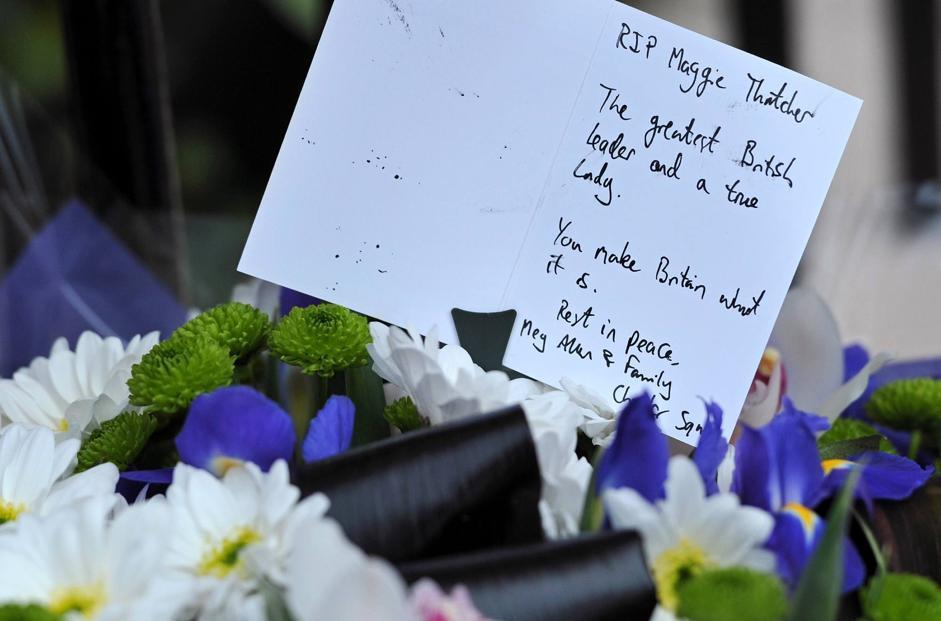 RIP Maggie Thatcher
The greatest British
leader and a true
Lady.
You make Britain what
it is.
Rest in peace
Meg & Family